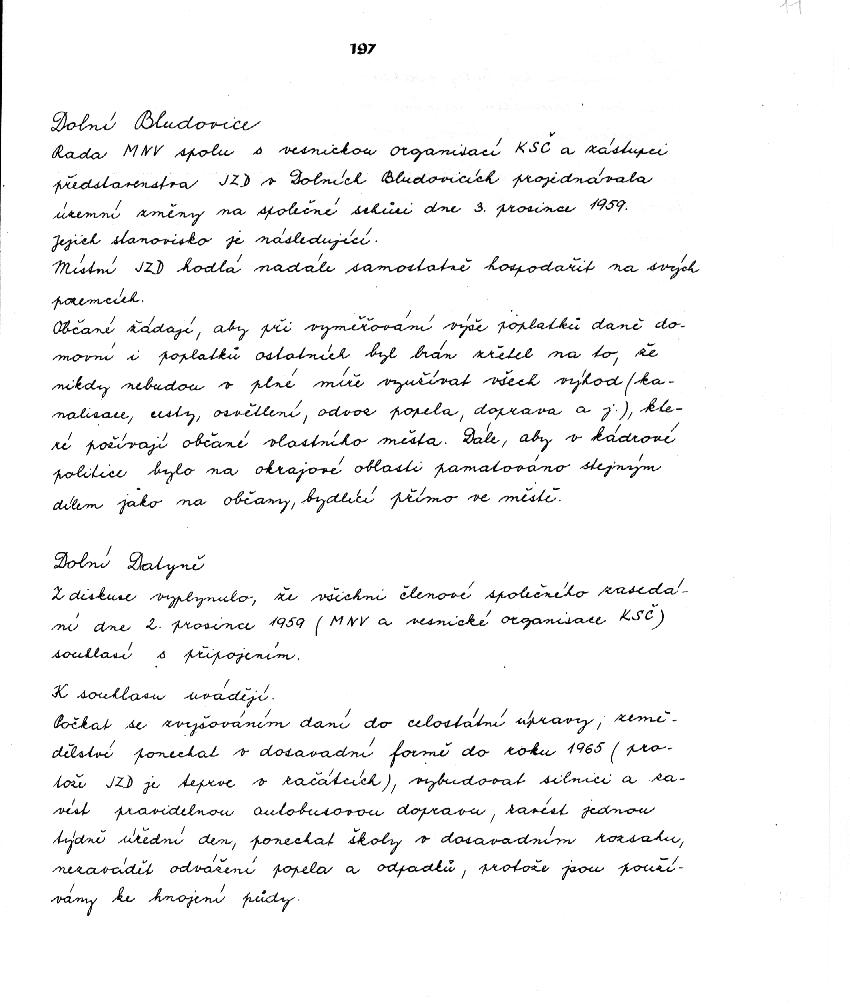 11
197
Dolní Bludovice
Rada MNV spolu s vesnickou organisací KSČ a zástupci
představenstva JZD v Dolních Bludovicích projednávala
územní změny na společné schůzi dne 3. prosince 1959.
Jejich stanovisko je následující.
Místní JZD hodlá nadále samostatně hospodařit na svých
pozemcích.
Občané žádají, aby při vyměřování výše poplatků daně do-
movní i poplatků ostatních byl brán zřetel na to, že
nikdy nebudou v plné míře využívat všech výhod (ka-
nalisace, cesty, osvětlení, odvoz popela, doprava a j.), kte-
ré požívají občané vlastního města. Dále, aby v kádrové
politice bylo na okrajové oblasti pamatováno stejným
dílem jako na občany, bydlící přímo ve městě.
Dolní Datyně
Z diskuse vyplynulo, že všichni členové společného zasedá-
ní dne 2. prosince 1959 (MNV a vesnické organisace KSČ)
souhlasí s připojením.
K souhlasu uvádějí.
Počkat se zvyšováním daní do celostátní úpravy, země-
dělství ponechat v dosavadní formě do roku 1965 (pro-
tože JZD je teprve v začátcích), vybudovat silnici a za-
vést pravidelnou autobusovou dopravu, zavést jednou
týdně úřední den, ponechat školy v dosavadním rozsahu,
nezavádět odvážení popela a odpadků, protože jsou použí-
vány ke hnojení půdy.